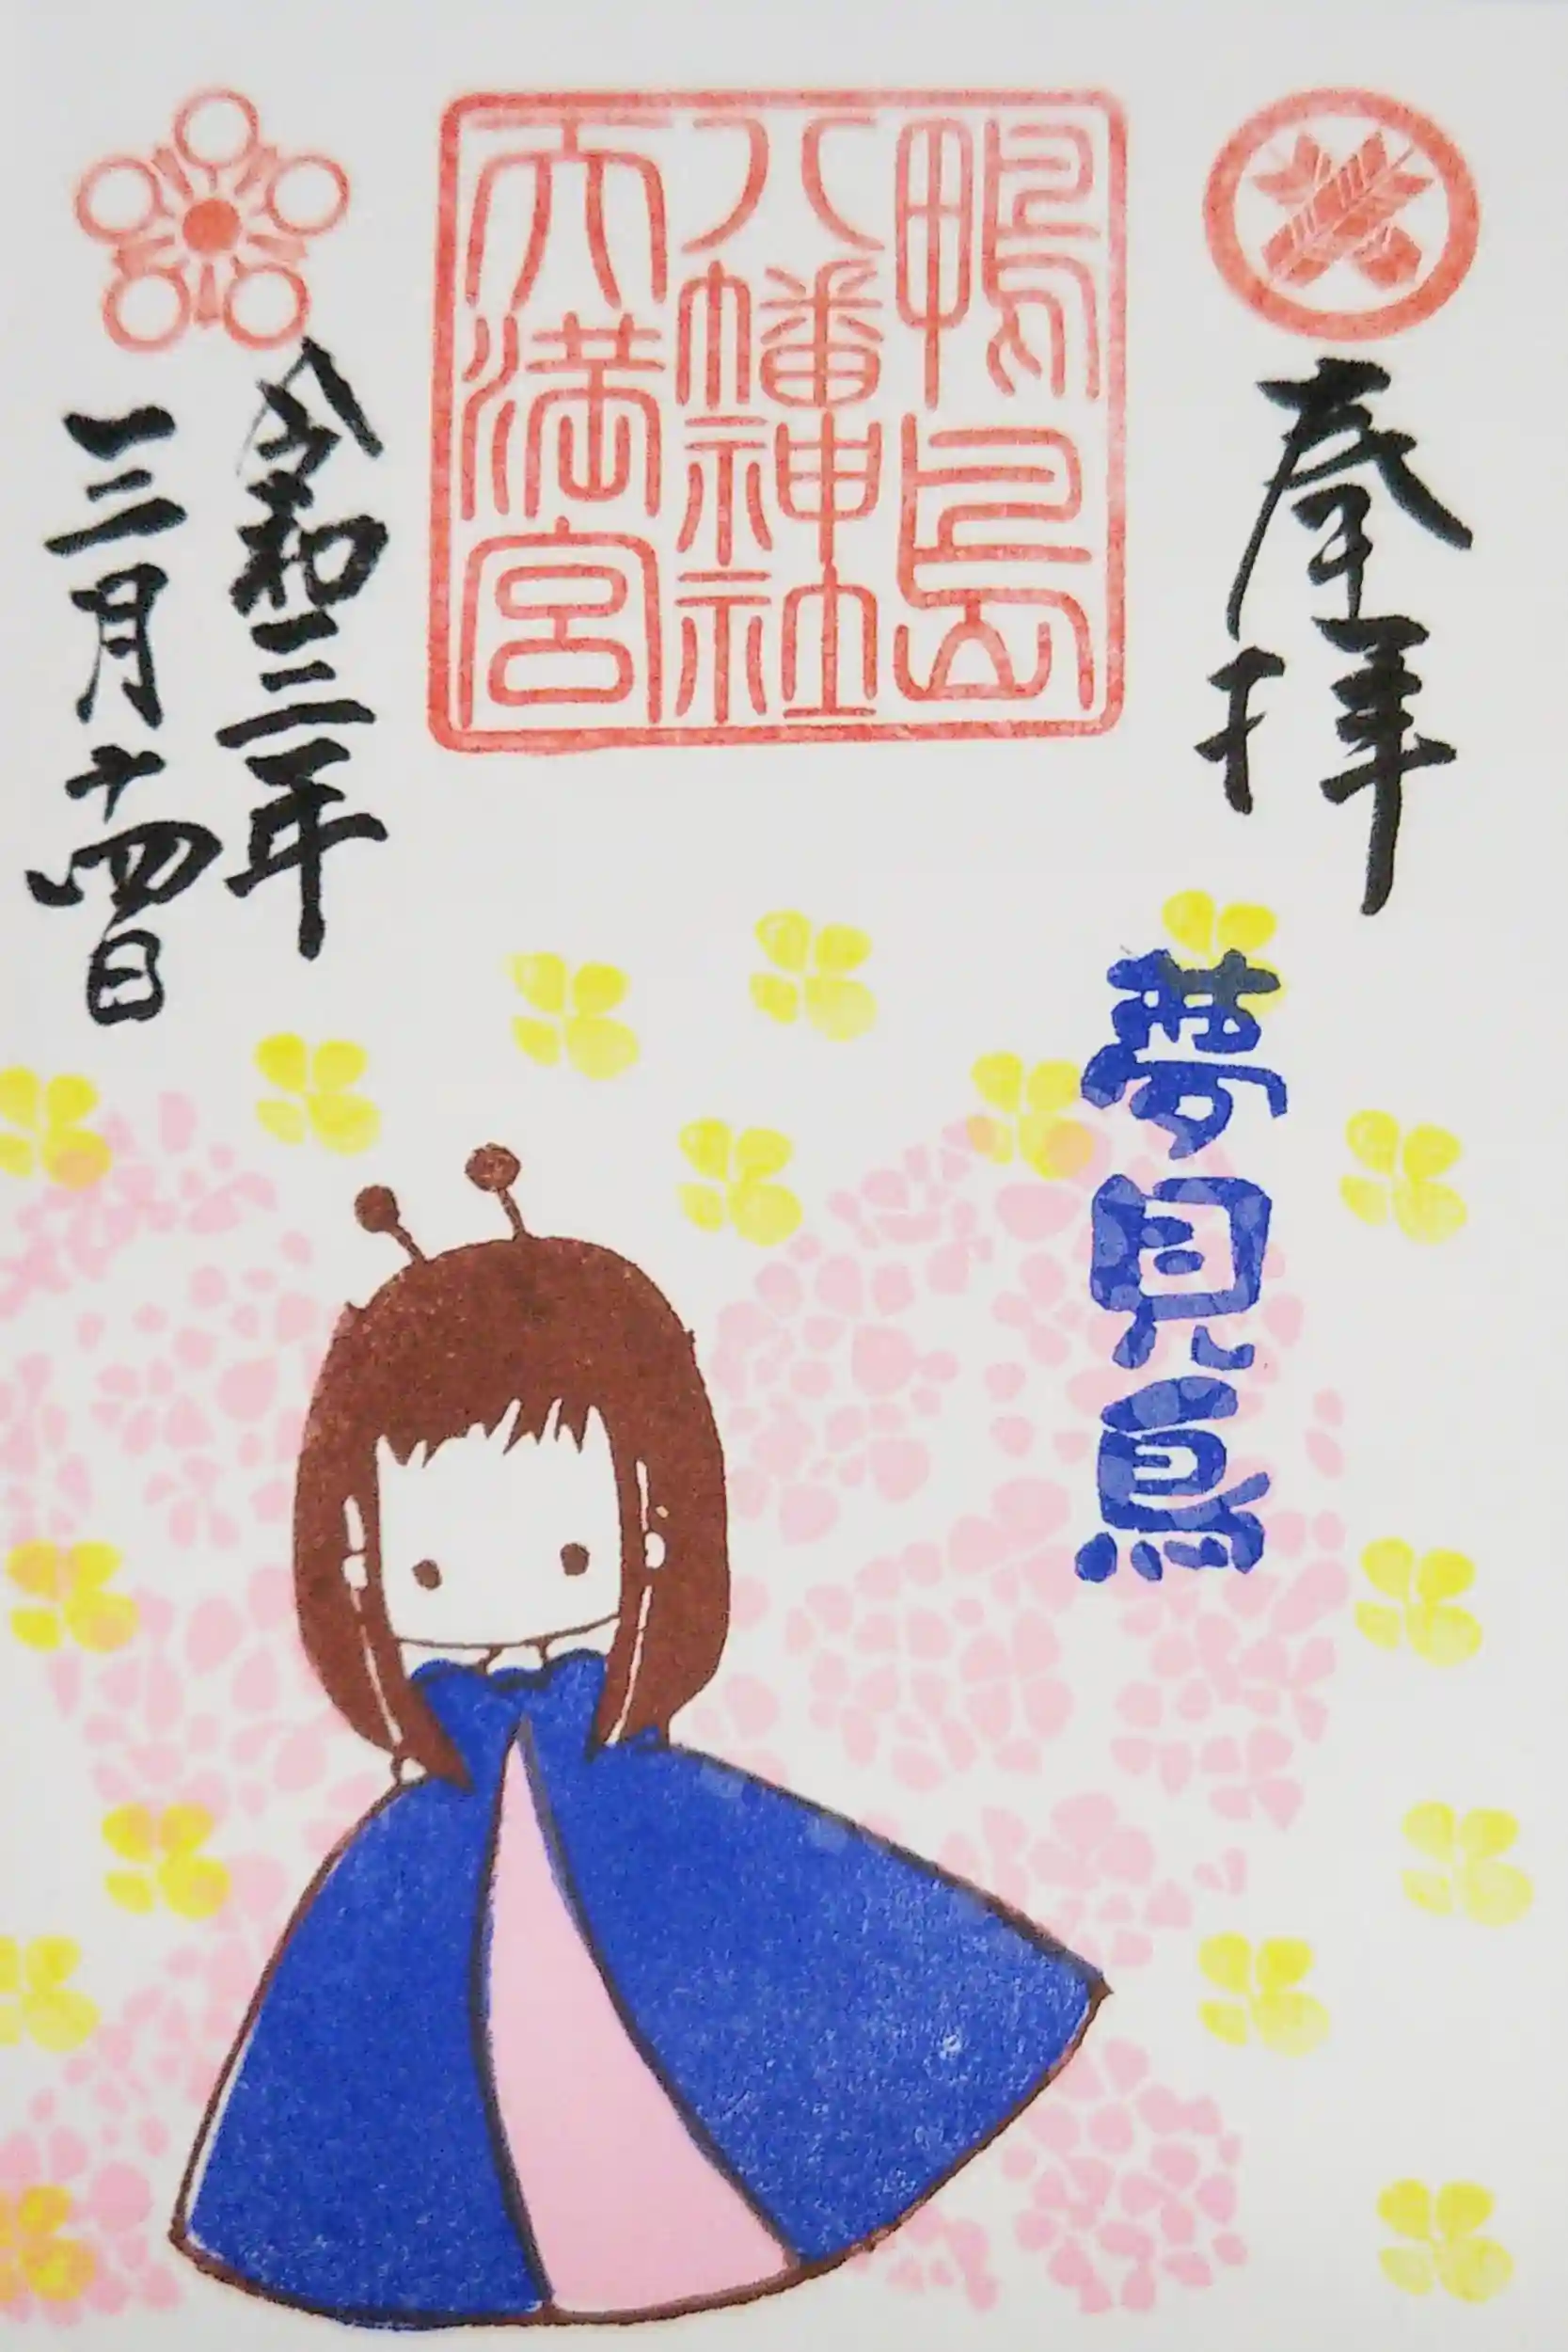 奉拝
夢見鳥
鴨島
八幡神社
天満宮
令和三年
三月十四日